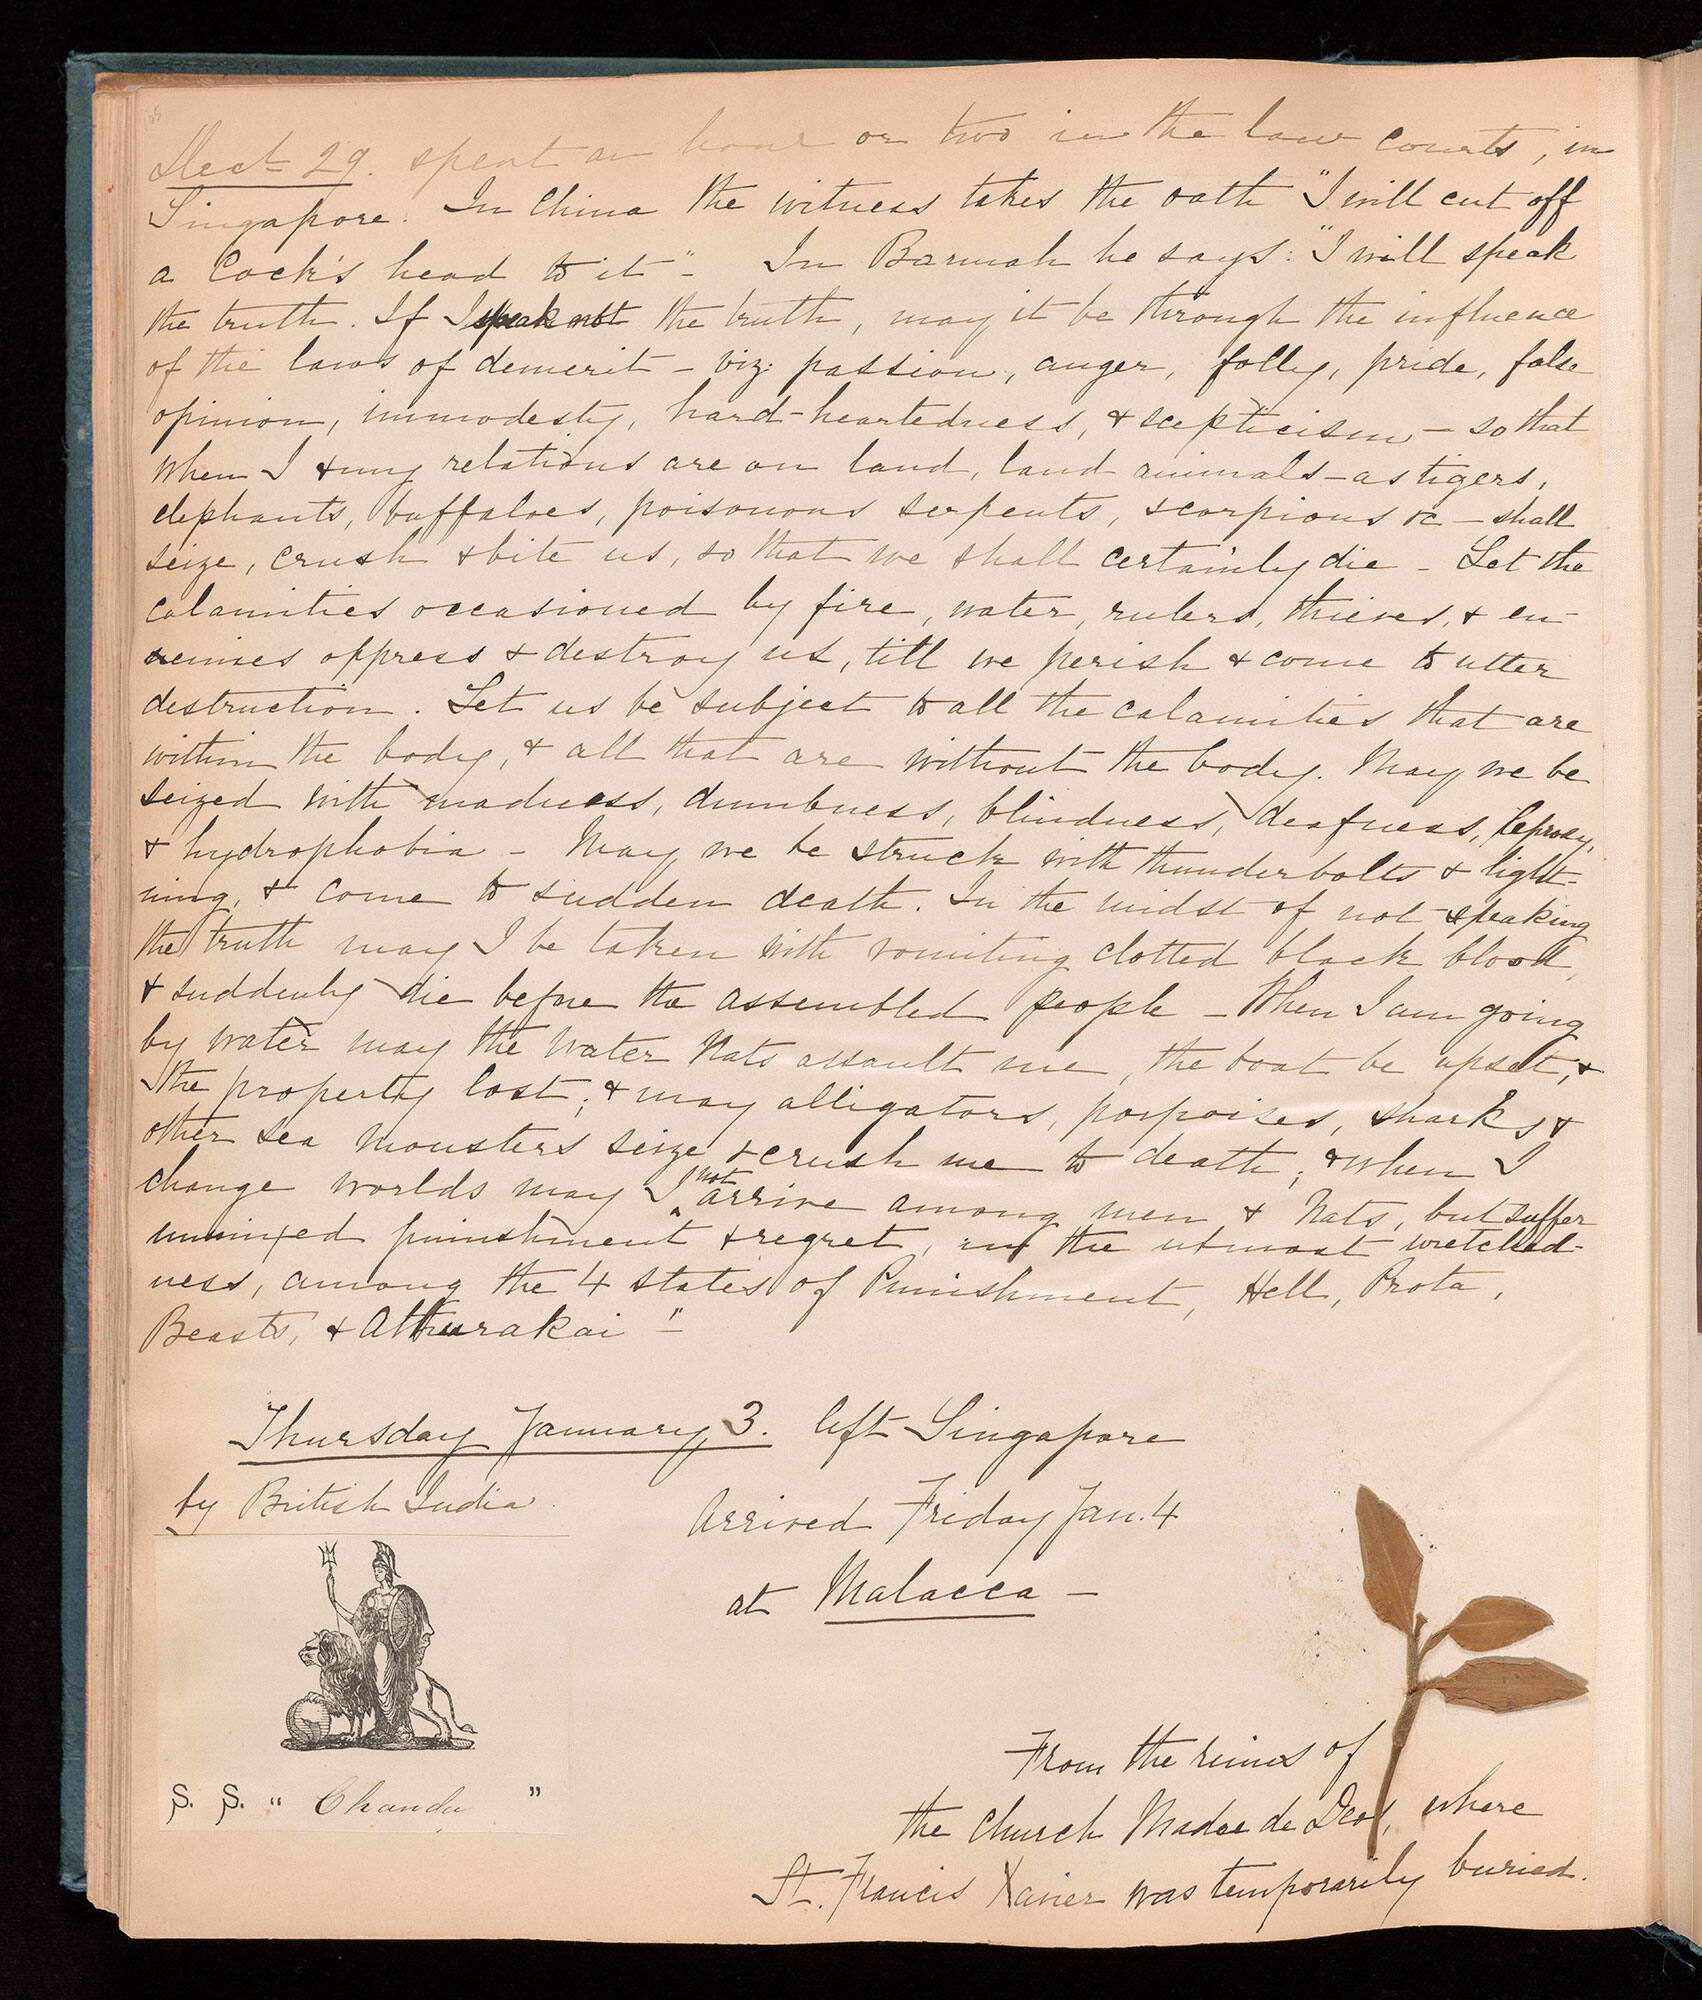 Dect 29. spent an hour or two in the law courts, in
Singapore. In China the witness takes the oath "I will cut off
a Cock's head to it" - In Barmah he says: "I will speak
the truth. If I speak not the truth, may it be through the influence
of the laws of demerit - viz: passion, anger, folly, pride, false
opinion, immodesty, hard-heartedness, & scepticism - so that
when I & my relations are on land, land animals - as tigers,
elephants, buffaloes, poisonous serpents, scorpions &c - shall
seize, crush & bite us, so that we shall certainly die - Let the
calamities occasioned by fire, water, rulers, thieves, & en-
emies oppress & destroy us, till we perish & come to utter
destruction. Let us be subject to all the calamities that are
within the body, & all that are without the body. May we be
seized with madness, dumbness, blindness, deafness, leprosy,
& hydrophobia - May we be struck with thunderbolts & light-
ning, & come to sudden death. In the midst of not speaking
the truth may I be taken with vomiting clotted black blood,
& suddenly die before the assembled people - When I am going
by water may the water Nats assault me, the boat be upset, &
the property lost; & may alligators, porpoises, sharks &
other sea monsters seize & crush me to death; & when I
change worlds may I not arrive among men & Nats, but suffer
unmixed punishment & regret, in the utmost wretched-
ness, among the 4 states of Punishment, Hell, Prota,
Beasts, & Athurakai" -
Thursday January 3. left Singapore
by British India
Arrived Friday Jan. 4
at Malacca -
S. S. " Chanda "
From the ruins of
the Church Madre de Deos, where
St. Francis Xavier was temporarily buried.